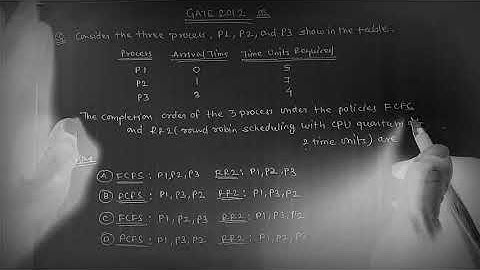 GATE 2012
Q. Consider the three process, P1, P2, and P3 show in the table.
Process Arrival Time Time Units Required
P1 0 5
P2 1 7
P3 3 4
The completion order of the 3 process under the policies FCFS
and RR2 (round robin scheduling with CPU quantum of
2 time units) are
(A) FCFS : P1, P2, P3 RR2 : P1, P2, P3
(B) FCFS : P1, P3, P2 RR2 : P1, P3, P2
(C) FCFS : P1, P2, P3 RR2 : P1, P3, P2
(D) FCFS : P1, P3, P2 RR2 : P1, P2,